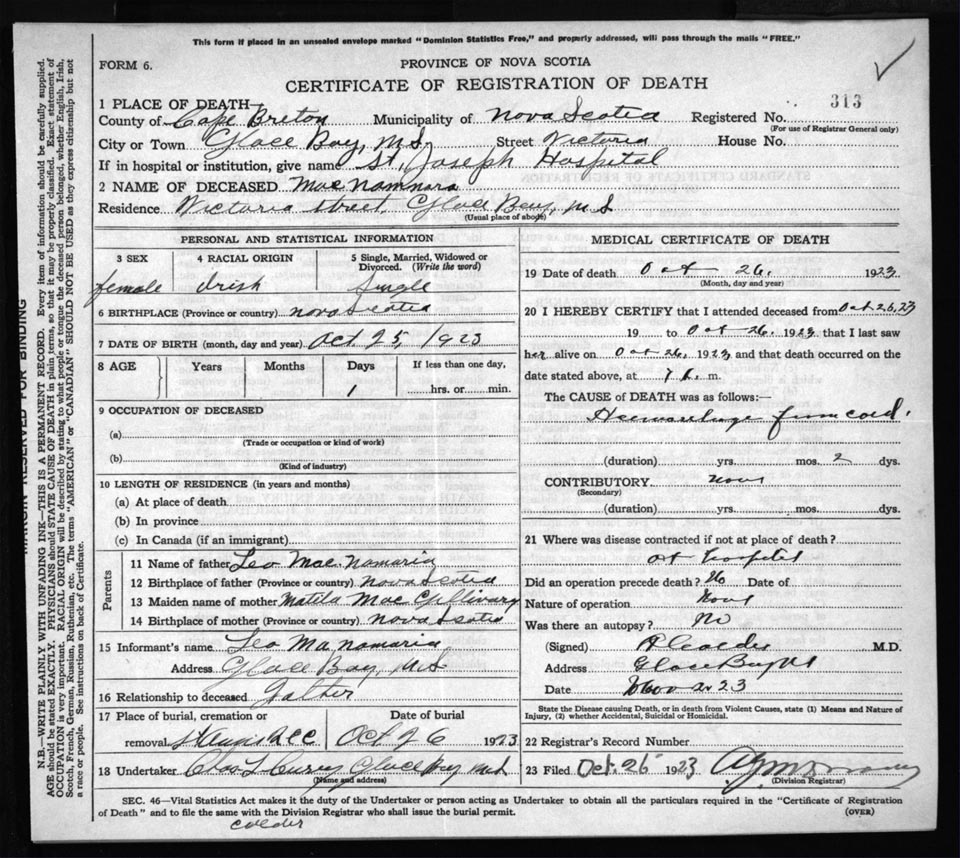 This form if placed in an unsealed envelope marked "Dominion Statistics Free," and properly addressed, will pass through the mails "FREE."
FORM 6.
PROVINCE OF NOVA SCOTIA
CERTIFICATE OF REGISTRATION OF DEATH
1 PLACE OF DEATH—
313
County of Cape Breton Municipality of Nova Scotia Registered No.
(For use of Registrar General only)
City or Town Glace Bay, N.S. Street Victoria House No.
If in hospital or institution, give name St. Joseph Hospital
2 NAME OF DECEASED MacNamnara
Residence Victoria Street, Glace Bay, N.S
(Usual place of abode)
PERSONAL AND STATISTICAL INFORMATION
3 SEX 4 RACIAL ORIGIN 5 Single, Married, Widowed or Divorced. (Write the word)
female Irish Single
6 BIRTHPLACE (Province or country) Nova Scotia
7 DATE OF BIRTH (month, day and year) Oct 25, 1923
8 AGE Years Months Days If less than one day,
1 hrs. or min.
9 OCCUPATION OF DECEASED
(a)
(Trade or occupation or kind of work)
(b)
(Kind of industry)
10 LENGTH OF RESIDENCE (in years and months)
(a) At place of death
(b) In province
(c) In Canada (if an immigrant)
Parents
11 Name of father Leo Mac Namaria
12 Birthplace of father (Province or country) Nova Scotia
13 Maiden name of mother Matila Mac Gillivary
14 Birthplace of mother (Province or country) Nova Scotia
15 Informant's name Leo Manamaria
Address Glace Bay, N.S
16 Relationship to deceased Father
17 Place of burial, cremation or Date of burial
removal Oct 26 1923
18 Undertaker Chas L Curry Glace Bay N.S
(Name and address)
MEDICAL CERTIFICATE OF DEATH
19 Date of death Oct 26, 1923
(Month, day and year)
20 I HEREBY CERTIFY that I attended deceased from Oct 26, 23
19 to Oct 26. 1923 that I last saw
her alive on Oct 26. 1923, and that death occurred on
date stated above, at m.
The CAUSE of DEATH was as follows:—
Hemorrhage from cord.
(duration) yrs. mos. 2 dys.
CONTRIBUTORY None
(Secondary)
(duration) yrs. mos. dys.
21 Where was disease contracted if not at place of death?
at hospital
Did an operation precede death? No Date of
Nature of operation None
Was there an autopsy? No
(Signed) A Calder M.D.
Address Glace Bay NS
Date Nov 2. 23
State the Disease causing Death, or in death from Violent Causes, state (1) Means and Nature of
Injury, (2) whether Accidental, Suicidal or Homicidal.
22 Registrar's Record Number
23 Filed Oct. 26 1923
(Division Registrar)
SEC. 46—Vital Statistics Act makes it the duty of the Undertaker or person acting as Undertaker to obtain all the particulars required in the "Certificate of Registration
of Death" and to file the same with the Division Registrar who shall issue the burial permit.
(OVER)
calder
MARGIN RESERVED FOR BINDING
N.B.—WRITE PLAINLY WITH UNFADING INK—THIS IS A PERMANENT RECORD. Every item of information should be carefully supplied.
AGE should be stated EXACTLY. PHYSICIANS should STATE CAUSE OF DEATH in plain terms, so that it may be properly classified. Exact statement of
OCCUPATION is very important. RACIAL ORIGIN will be described by stating to what people or tongue the deceased person belonged, whether English, Irish,
Scotch, French, German, Russian, Ruthenian, etc. The terms "AMERICAN" or "CANADIAN" SHOULD NOT BE USED as they express citizenship but not
a race or people. See instructions on back of Certificate.